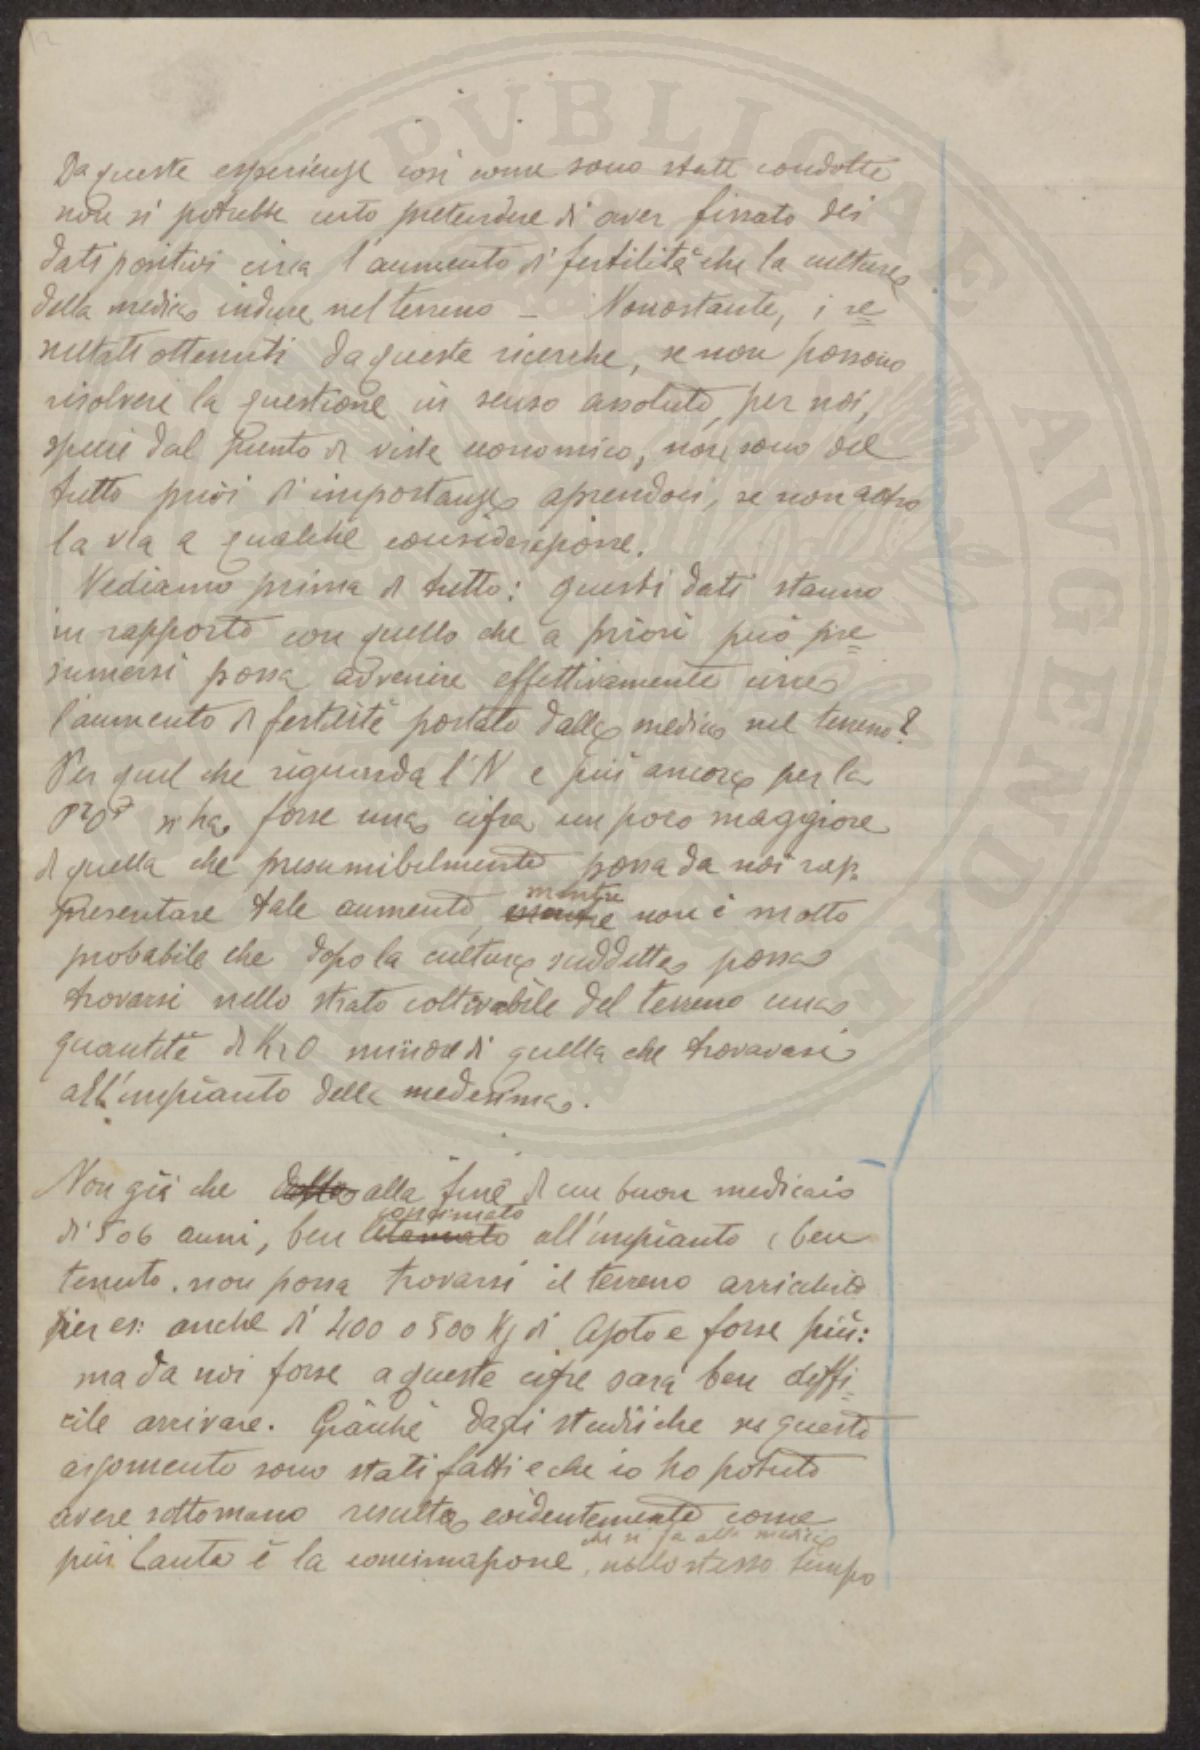 12
Da queste esperienze così come sono state condotte
non si potrebbe certo pretendere di aver fissato dei
dati positivi circa l'aumento di fertilità che la cultura
della medica induce nel terreno – Nonostante, i re=
sultati ottenuti da queste ricerche, se non possono
risolvere la questione in senso assoluto, per noi,
specie dal punto di vista economico, non sono del
tutto privi d'importanza aprendoci, se non altro
la via a qualche considerazione.
Vediamo prima di tutto: questi dati stanno
in rapporto con quello che a priori può pre=
sumersi possa avvenire effettivamente circa
l'aumento di fertilità portato dalla medica nel terreno?
Per quel che riguarda l'N e più ancora per la
P2O5 si ha forse una cifra un poco maggiore
di quella che presumibilmente possa da noi rap=
presentare tale aumento, mentre non è molto
probabile che dopo la cultura suddetta possa
trovarsi nello strato coltivabile del terreno una
quantità di K2O minore di quella che trovavasi
all'impianto della medesima.
Non già che alla fine di un buon medicaio
di 5 o 6 anni, ben concimato all'impianto e ben
tenuto, non possa trovarsi il terreno arricchito
per es: anche di 400 o 500 Kg di Azoto e forse più:
ma da noi forse a queste cifre sarà ben diffi=
cile arrivare. Giacchè dagli studii che su questo
argomento sono stati fatti e che io ho potuto
avere sottomano resulta evidentemente come
più lauta è la concimazione che si fa alla medica, nello stesso tempo
PVBLICAE AVGENDAE